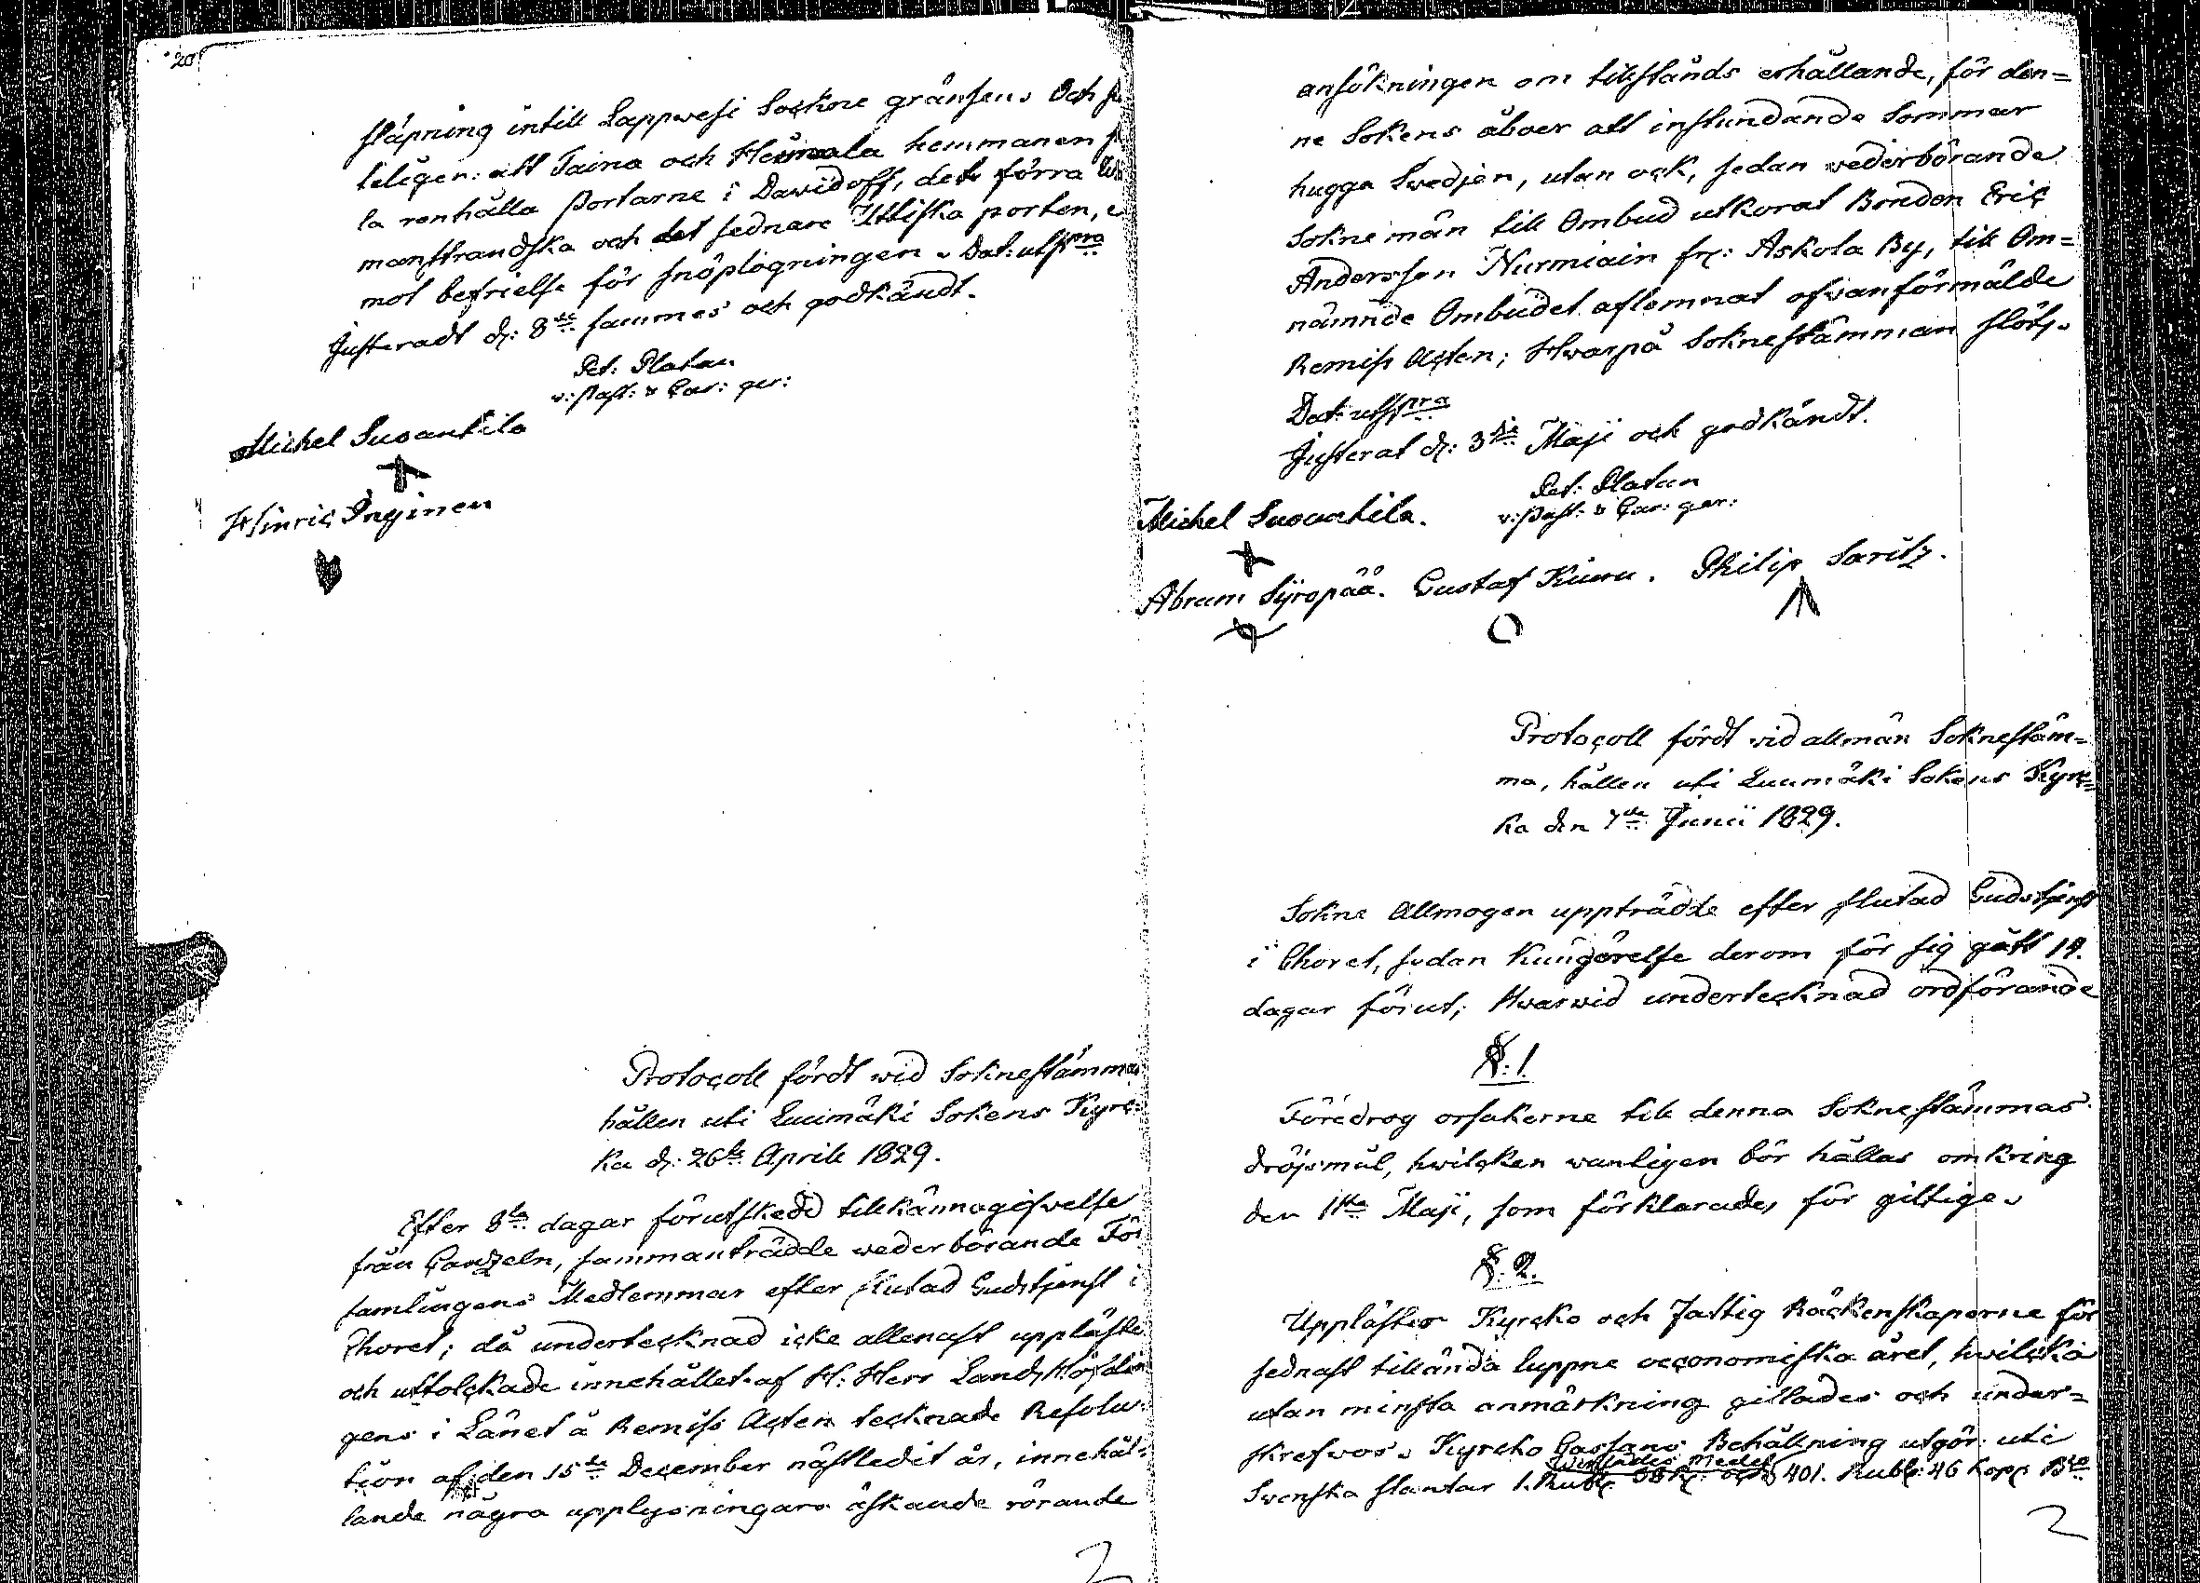 20
släpning intill Lappvesi Sockne gränsen. Och
teligen: att Taina och Heimala hemmanen
la renhålla Portarne i Dawidoff, det förra
manstrandska och det sednare Uttiska porten,
mot befrielse för snöplogningen. Dat: utspra
Justeradt d: 8de sammes och godkändt.
Pet: Platan
v: Past: & Car: ger:
Michel Suoantila
Hinric Inginen
Protocoll fördt wid Soknestämma
hållen uti Luumäki Sokens Kyrc=
ka d: 26te Aprill 1829.
Efter 8ta dagar förutskedd tillkännagifwelse
från Canzeln, sammanträdde wederbörande För
samlingens Medlemmar efter slutad Gudstjenst i
Choret; då undertecknad icke allenast uppläste
och uttolckade innehållet af H: Herr Landshöfdin
gens i Länet å Remiss Acten tecknade Resolu=
tion af den 15de December nästledit år, innehål=
lande några upplysningars äskande rörande
2
ansökningen om tillstånds erhållande, för den=
ne Sokens åboer att instundande Sommar
hugga Swedjen, utan ock, sedan wederbörande
Soknemän till Ombud utkorat Bonden Eric
Andersson Nurmiain fr: Askola By, till Om=
nämnde Ombudet aflemnat ofwanförmälde
Remiss Acten; Hwarpå Soknestämman slöts.
Dat: utspra
Justerat d: 3dje Maji och godkändt.
Pet: Platan
v: Past: & Car: ger:
Michel Suoantila.
Abram Syropää. Gustaf Kiuru. Philip Saritz.
Protocoll fördt wid allmän Soknestäm=
ma, hållen uti Luumäki Sokens Kyrc=
ka den 7de Junii 1829.
Sokne Allmogen uppträdde efter slutad Gudstjenst
i Choret, sedan Kungörelse derom för sig gått 14.
dagar förut; Hwarwid undertecknad ordförande
§. 1.
Föredrog orsakerne till denna Soknestämmas
dröjsmål, hwilcken wanligen bör hållas omkring
den 1sta Maji, som förklarades för giltige.
§. 2.
Upplästes Kyrcko och Fattig Räckenskaperne för
sednast tilländalupne oeconomiska året, hwilcka
utan minsta anmärkning gillades och under=
skrefwos. Kyrcko Cassans Behållning utgör uti
Swenska slantar 1. Rubl: 401. Rubl: 46 Kop: Bco
2